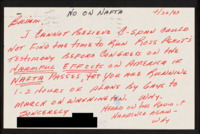 NO ON NAFTA
BRIAN:
I CANNOT BELIEVE C-SPAN COULD
NOT FIND THE TIME TO RUN ROSS PEROT'S
TESTIMONY BEFORE CONGRESS ON THE
HARMFUL EFFECTS ON AMERICA IF
NAFTA PASSES, YET YOU ARE RUNNING
1-2 HOURS OF PLANS BY GAYS TO
MARCH ON WASHINGTON. WHY.
SINCERELY